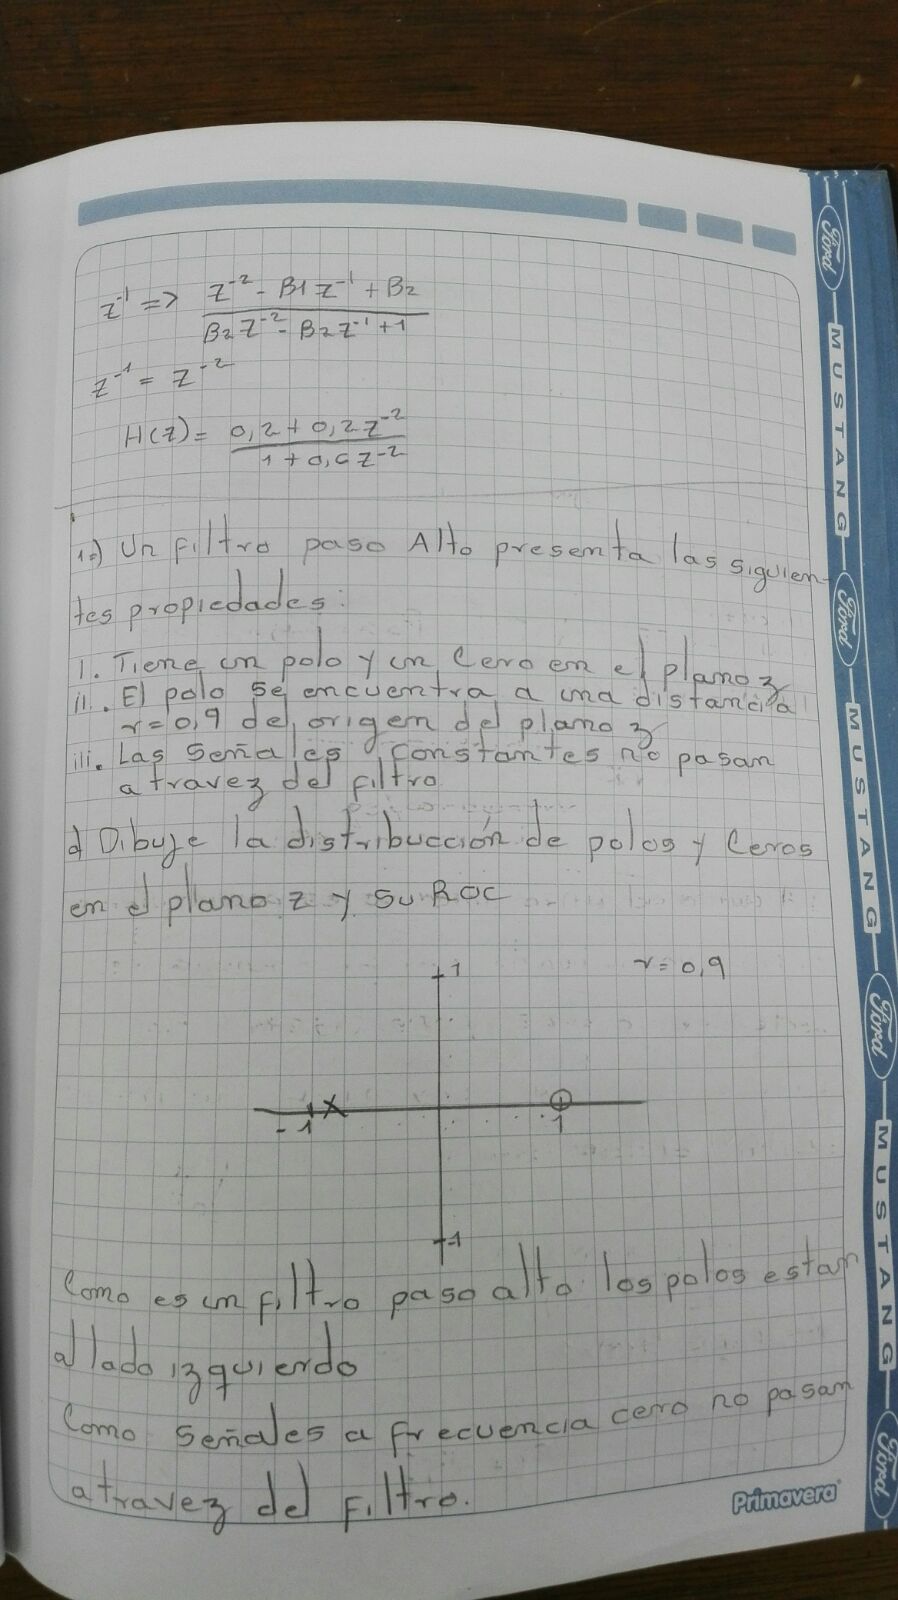 z⁻¹ => (z⁻² - B1 z⁻¹ + B2) / (B2 z⁻² - B2 z⁻¹ + 1)
z⁻¹ = z⁻²
H(z) = (0,2 + 0,2 z⁻²) / (1 + 0,6 z⁻²)
1.) Un filtro paso Alto presenta las siguien-
tes propiedades:
I. Tiene un polo y un Cero en el plano z
ii. El polo se encuentra a una distancia
r=0,9 de origen del plano z
iii. Las Señales Constantes no pasan
a travez del filtro
a) Dibuje la distribucción de polos y Ceros
en el plano z y su ROC
1
r=0,9
-1
1
-1
Como es un filtro paso alto los polos estan
al lado izquierdo
Como señales a frecuencia cero no pasan
a travez del filtro.
Primavera
Ford
MUSTANG
Ford
MUSTANG
Ford
MUSTANG
Ford